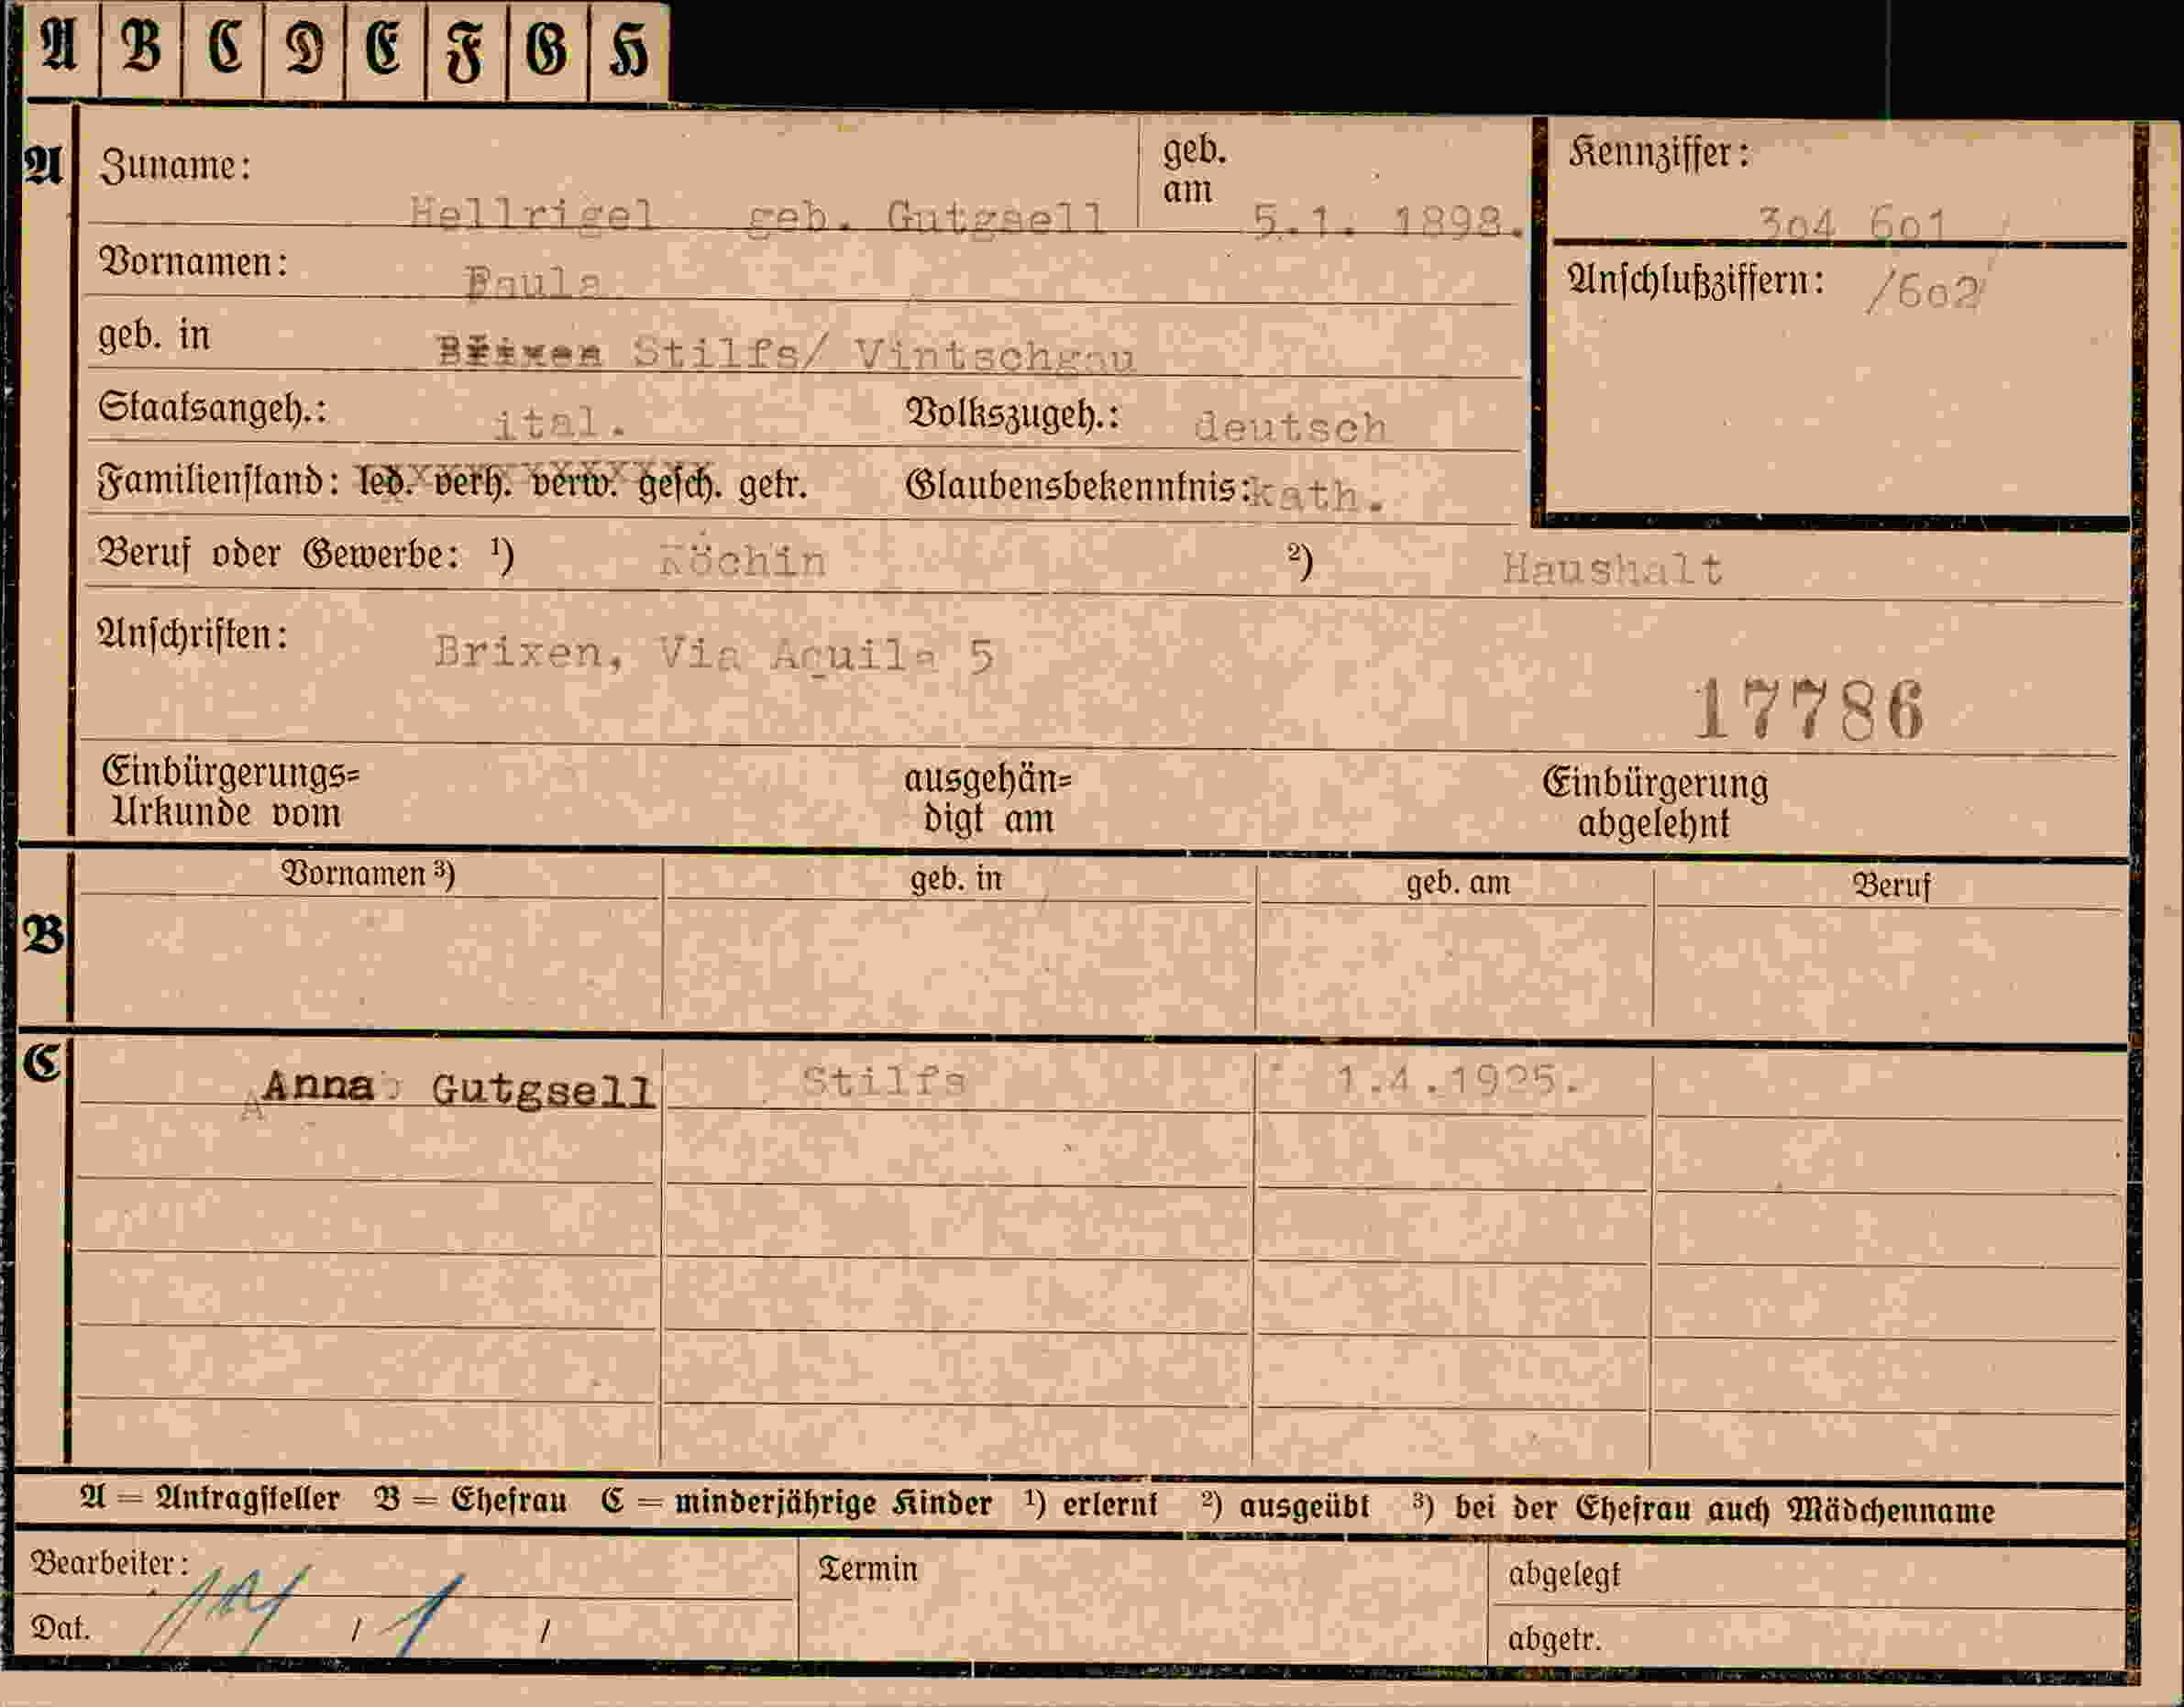 A B C D E F G H
A Zuname: Hellrigel geb. Gutgsell geb. am 5.1. 1898.
Kennziffer: 304 601
Vornamen: Paula
Anschlußziffern: /602
geb. in Brixen Stilfs/ Vintschgau
Staatsangeh.: ital. Volkszugeh.: deutsch
Familienstand: led. verh. verw. gesch. getr. Glaubensbekenntnis: kath.
Beruf oder Gewerbe: ¹) Köchin ²) Haushalt
Anschriften: Brixen, Via Aquila 5
17786
Einbürgerungs= ausgehän= Einbürgerung
Urkunde vom digt am abgelehnt
B Vornamen ³) geb. in geb. am Beruf
C Anna Gutgsell Stilfs 1.4.1925.
A = Antragsteller B = Ehefrau C = minderjährige Kinder ¹) erlernt ²) ausgeübt ³) bei der Ehefrau auch Mädchenname
Bearbeiter: Termin abgelegt
Dat. / 1 / abgetr.